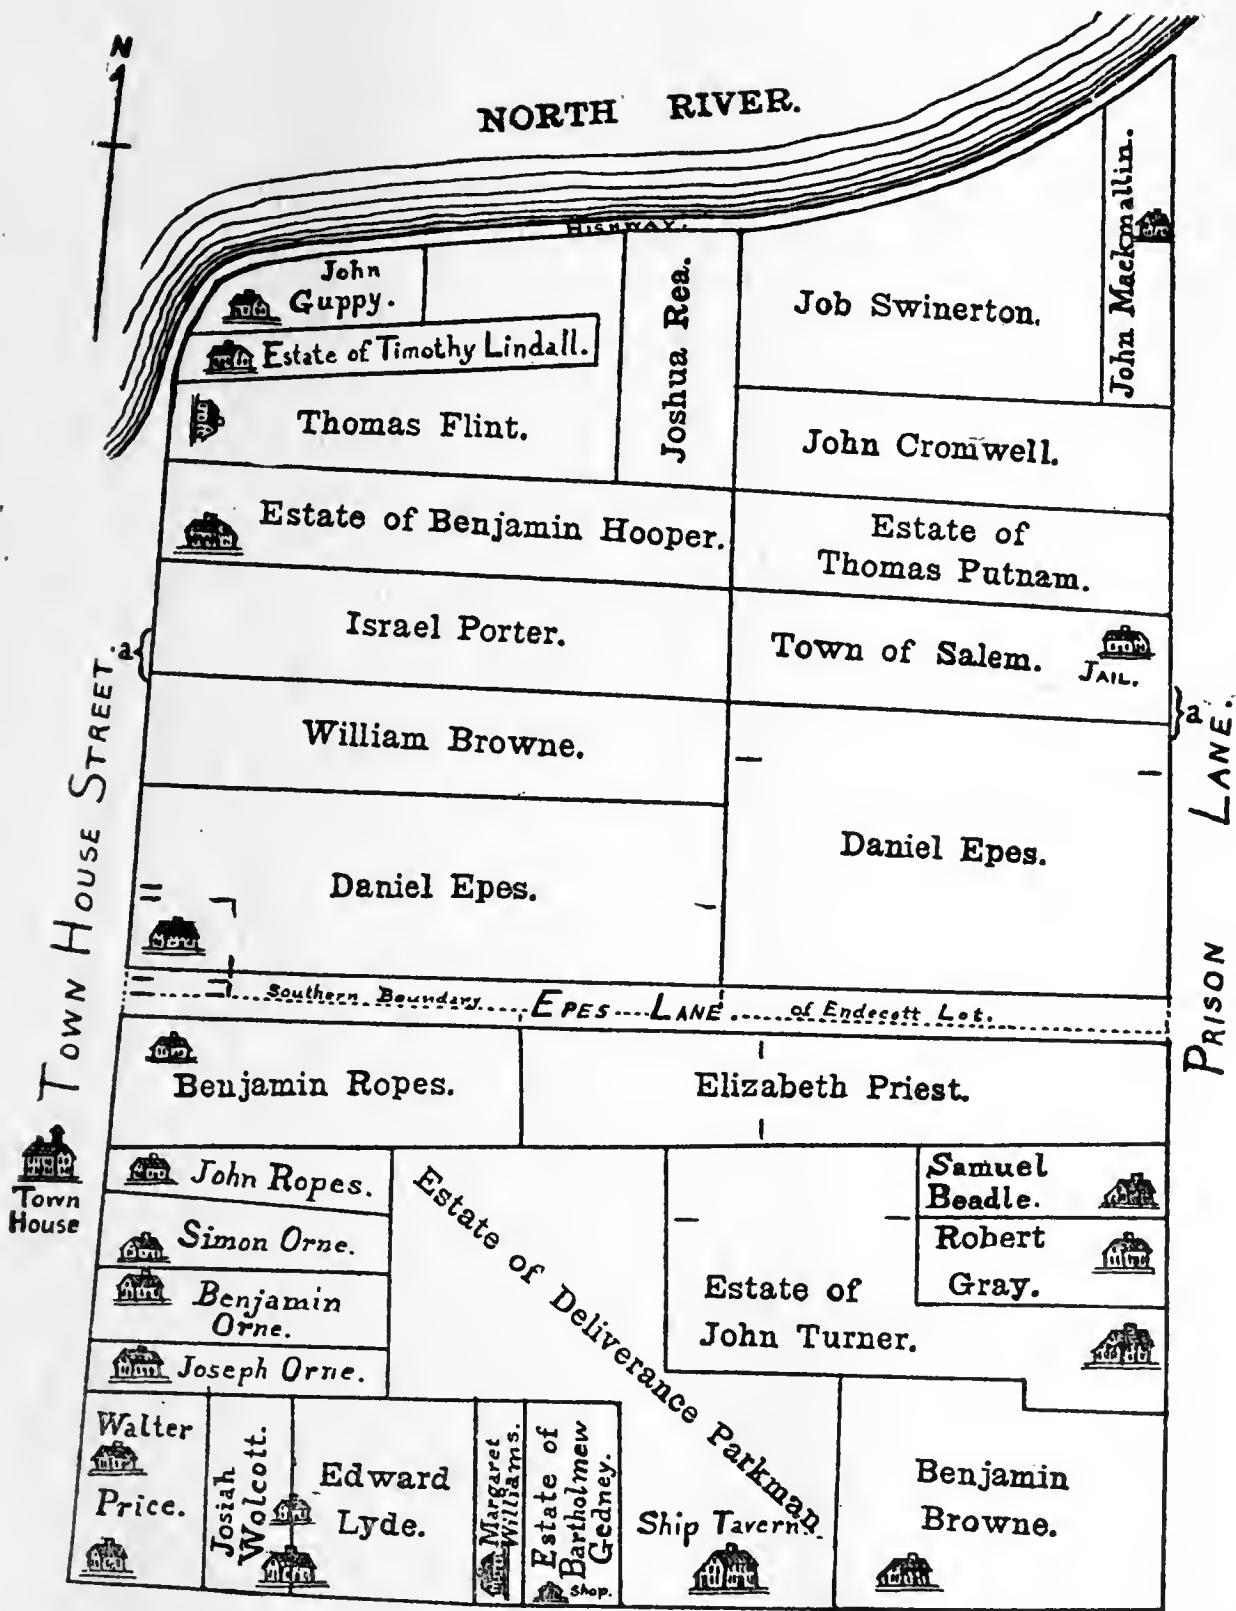 N
NORTH RIVER.
HIGHWAY.
John
Guppy.
Estate of Timothy Lindall.
Thomas Flint.
Joshua Rea.
Job Swinerton.
John Mackmallin.
John Cromwell.
Estate of Benjamin Hooper.
Estate of
Thomas Putnam.
Israel Porter.
a
Town of Salem.
JAIL.
a
William Browne.
Daniel Epes.
Daniel Epes.
TOWN HOUSE STREET.
PRISON LANE.
Southern Boundary EPES LANE of Endecott Lot.
Benjamin Ropes.
Elizabeth Priest.
Town
House
John Ropes.
Simon Orne.
Benjamin
Orne.
Joseph Orne.
Estate of Deliverance Parkman.
Samuel
Beadle.
Robert
Gray.
Estate of
John Turner.
Walter
Price.
Josiah
Wolcott.
Edward
Lyde.
Margaret
Williams.
Estate of
Bartholmew
Gedney.
Shop.
Ship Tavern.
Benjamin
Browne.